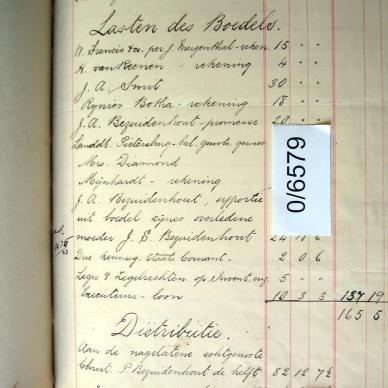 Lasten des Boedels.
W. Francis &co. per J. Mergenthal - reken. 15 - -
H. van Reenen - rekening 4 - -
J. A. Smit 30 - -
Rynier Botha - rekening 18 - -
J. A. Bezuidenhout - promesse 20 - -
Landdt. Pietersburg - bal. gouvts. geweer
Mrs. Diamond
Mijnhardt - rekening
J. A. Bezuidenhout,
uit boedel zijner overledene
moeder J. E. Bezuidenhout 24 10 6
Drie kennisg. Staats Courant - 2 0 6
Leges & Zegelrechten op Invent. enz 5 - -
Executeurs - loon 10 3 3 157 19
165 5
Distributie.
Aan de nagelatene echtgenoote
Christ. P. Bezuidenhout de helft 82 12 7½
0/6579